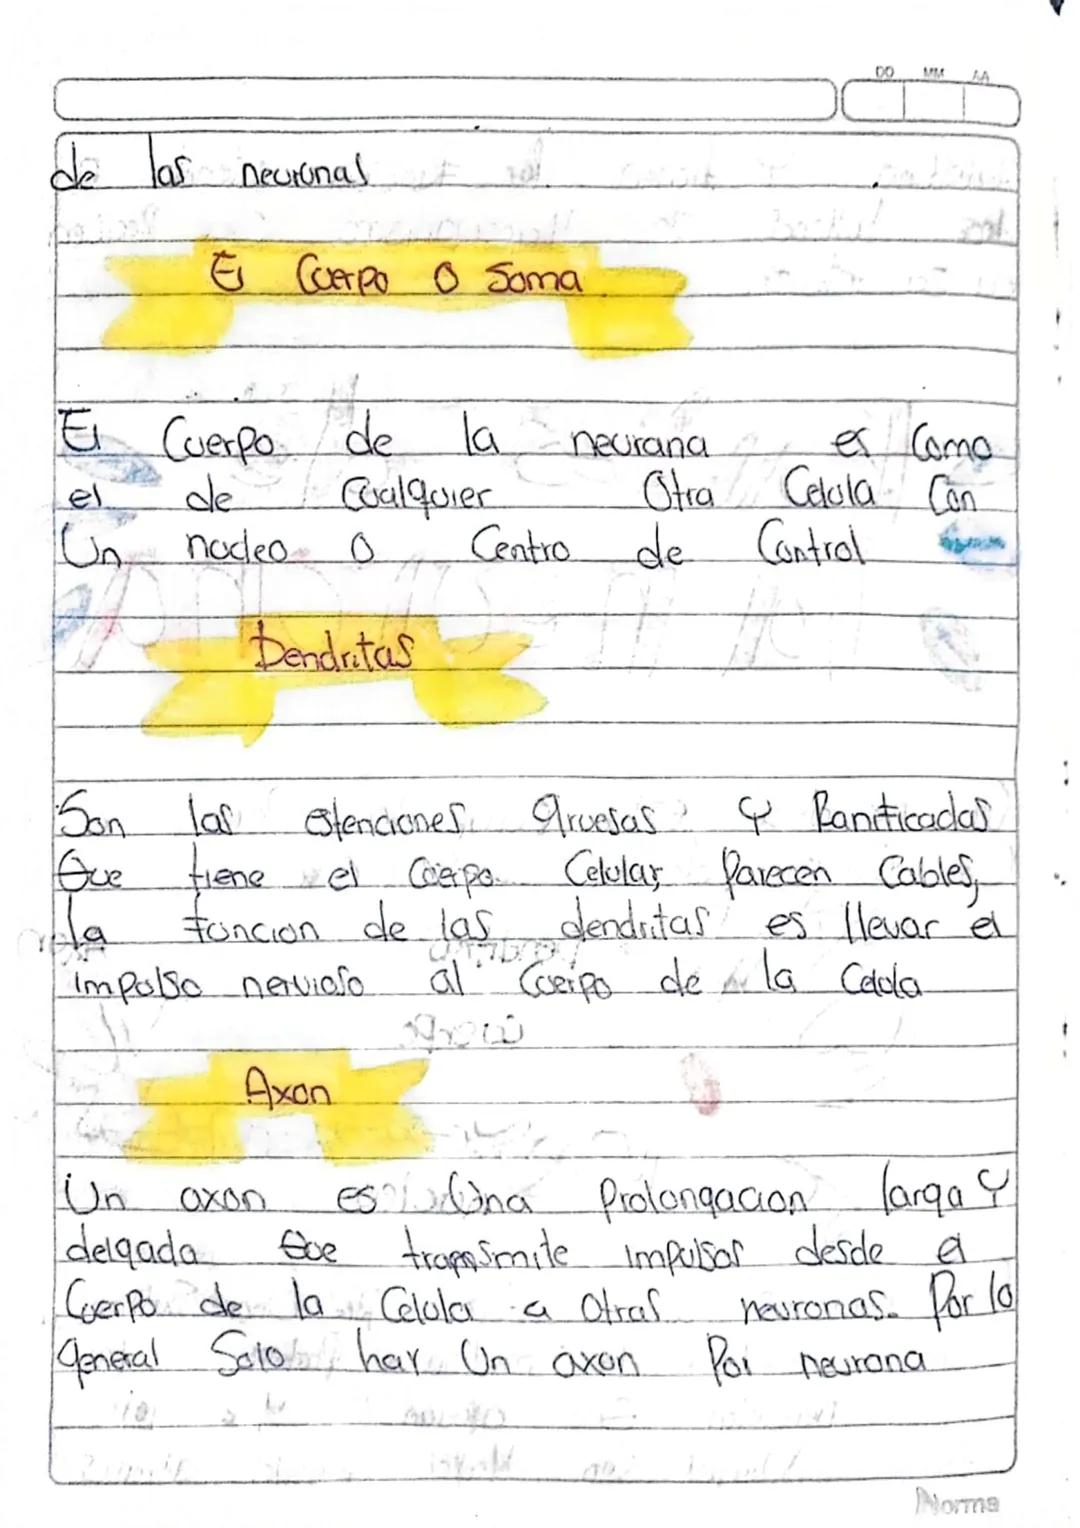 DD MM AA
de las neuronas
El Cuerpo O Soma
El Cuerpo de la neurana es Como
el de Cualquier Otra Celula Con
Un nucleo O Centro de Control
Dendritas
Son las estenciones gruesas Y Ranificadas
Que tiene el Cuerpo Celular, Parecen Cables,
la funcion de las dendritas es llevar el
impulso nervioso al Cuerpo de la Celula
Axon
Un axon es Una Prolongacion larga Y
delgada Que transmite impulsos desde el
Cuerpo de la Celula a Otras neuronas. Por lo
general Solo hay Un axon Por neurona
Norma